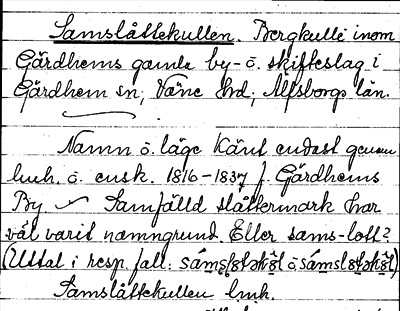 Samslåttekullen. Bergkulle inom
Gärdhems gamla by- o. skifteslag i
Gärdhem sn, Väne hd, Älfsborgs län.
Namn o. läge känt endast genom
lmh. o. ensk. 1816-1837 f. Gärdhems
By. Samfälld slåttermark har
väl varit namngrund. Eller sams-lott?
(Uttal i resp. fall:
Samslåttekullen lmh.